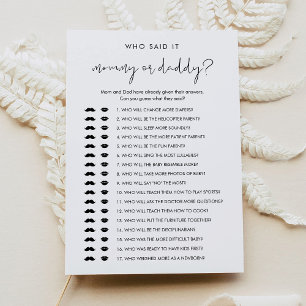 WHO SAID IT
mommy or daddy?
Mom and Dad have already given their answers.
Can you guess what they said?
1. WHO WILL CHANGE MORE DIAPERS?
2. WHO WILL BE THE HELICOPTER PARENT?
3. WHO WILL SLEEP MORE SOUNDLY?
4. WHO WILL BE THE MORE PATIENT PARENT?
5. WHO WILL BE THE FUN PARENT?
6. WHO WILL SING THE MOST LULLABIES?
7. WHO WILL THE BABY RESEMBLE MORE?
8. WHO WILL TAKE MORE PHOTOS OF BABY?
9. WHO WILL SAY "NO" THE MOST?
10. WHO WILL TEACH THEM HOW TO PLAY SPORTS?
11. WHO WILL ASK THE DOCTOR MORE QUESTIONS?
12. WHO WILL TEACH THEM HOW TO COOK?
13. WHO WILL PUT THE FURNITURE TOGETHER?
14. WHO WILL BE THE DISCIPLINARIAN?
15. WHO WAS THE MORE DIFFICULT BABY?
16. WHO WANTED TO HAVE KIDS FIRST?
17. WHO WEIGHED MORE AS A NEWBORN?